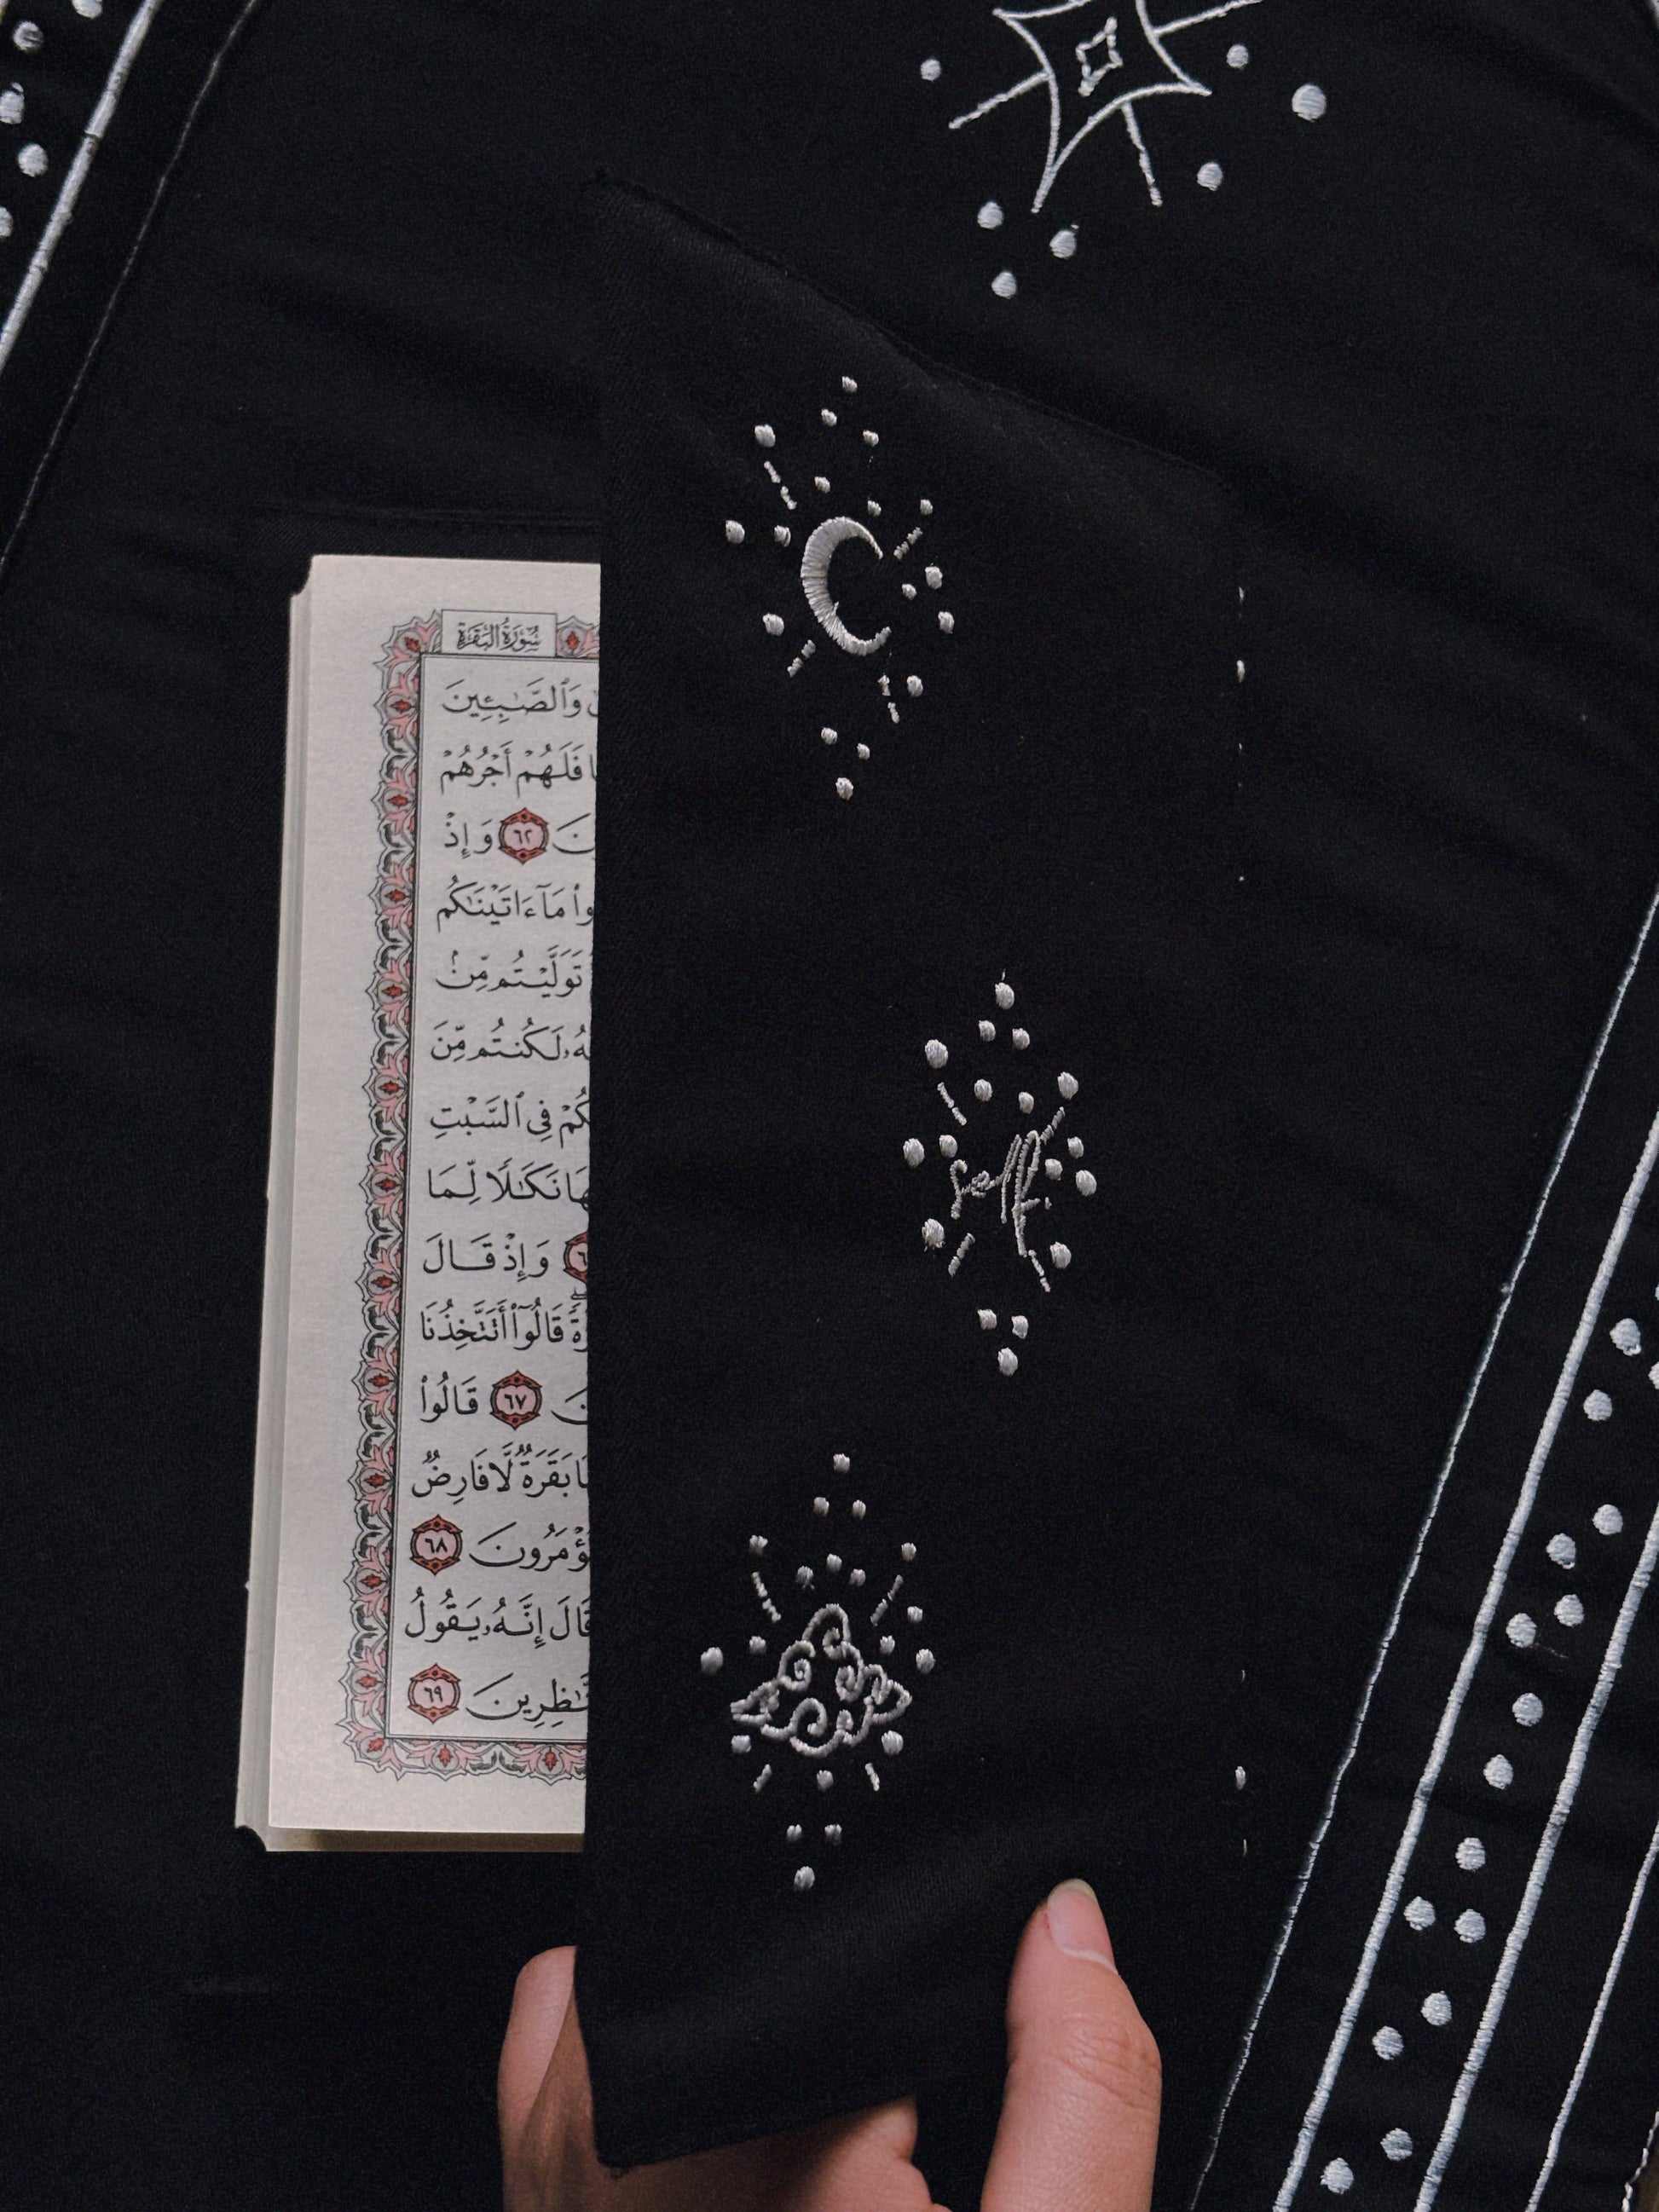 سُورَةُ البَقَرَةِ
وَٱلصَّٰبِـِٔينَ
فَلَهُمْ أَجْرُهُمْ
٦٢ وَإِذْ
مَآ ءَاتَيْنَٰكُم
تَوَلَّيْتُم مِّنۢ
لَكُنتُم مِّنَ
فِى ٱلسَّبْتِ
نَكَٰلًا لِّمَا
وَإِذْ قَالَ
قَالُوٓا۟ أَتَتَّخِذُنَا
٦٧ قَالُوا۟
بَقَرَةٌ لَّا فَارِضٌ
ؤْمَرُونَ ٦٨
قَالَ إِنَّهُۥ يَقُولُ
ٱلنَّٰظِرِينَ ٦٩